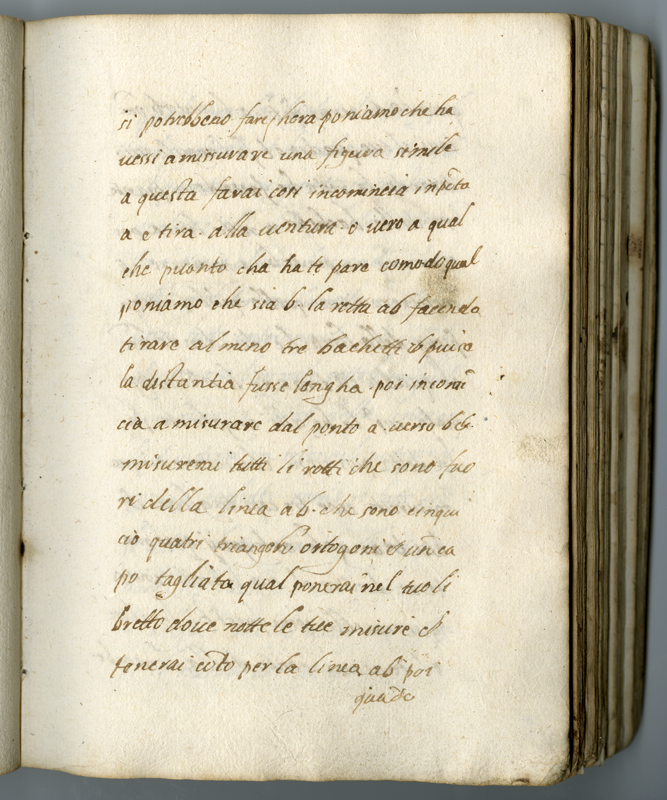 si potrebbeno fare, hora poniamo che ha
vessi a missurare una figura simile
a questa farai cosi incomincia in pūto
a e tira alla ventura e vero a qual
che puonto cha ha te pare comodo qual
poniamo che sia b. la retta ab facendo
tirare al meno tre bachetti
la distantia fusse longha poi incomī
cia a misurare dal ponto a. verso b &
misurerai tutti li rotti che sono fuo
ri della linea ab. che sono cinqui
ciò quatri triangoli ortogoni & un ca
po tagliata qual ponerai nel tuo li
bretto dove notte le tue misure &
tenerai cōto per la linea ab poi
quādo